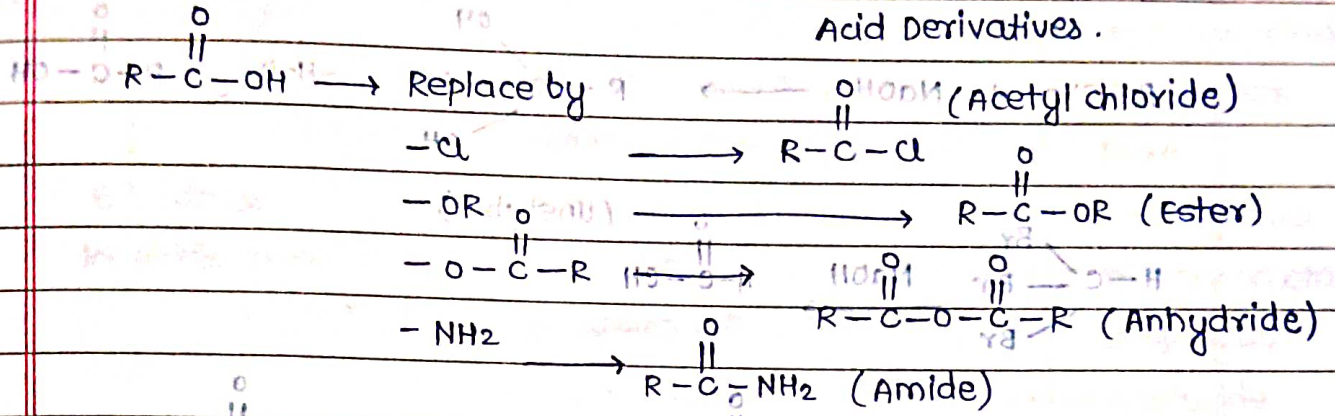 Acid Derivatives.
O
||
R-C-OH → Replace by
O (Acetyl chloride)
||
-Cl → R-C-Cl
O
||
-OR → R-C-OR (Ester)
O
||
-O-C-R →
O O
|| ||
R-C-O-C-R (Anhydride)
-NH2 →
O
||
R-C-NH2 (Amide)